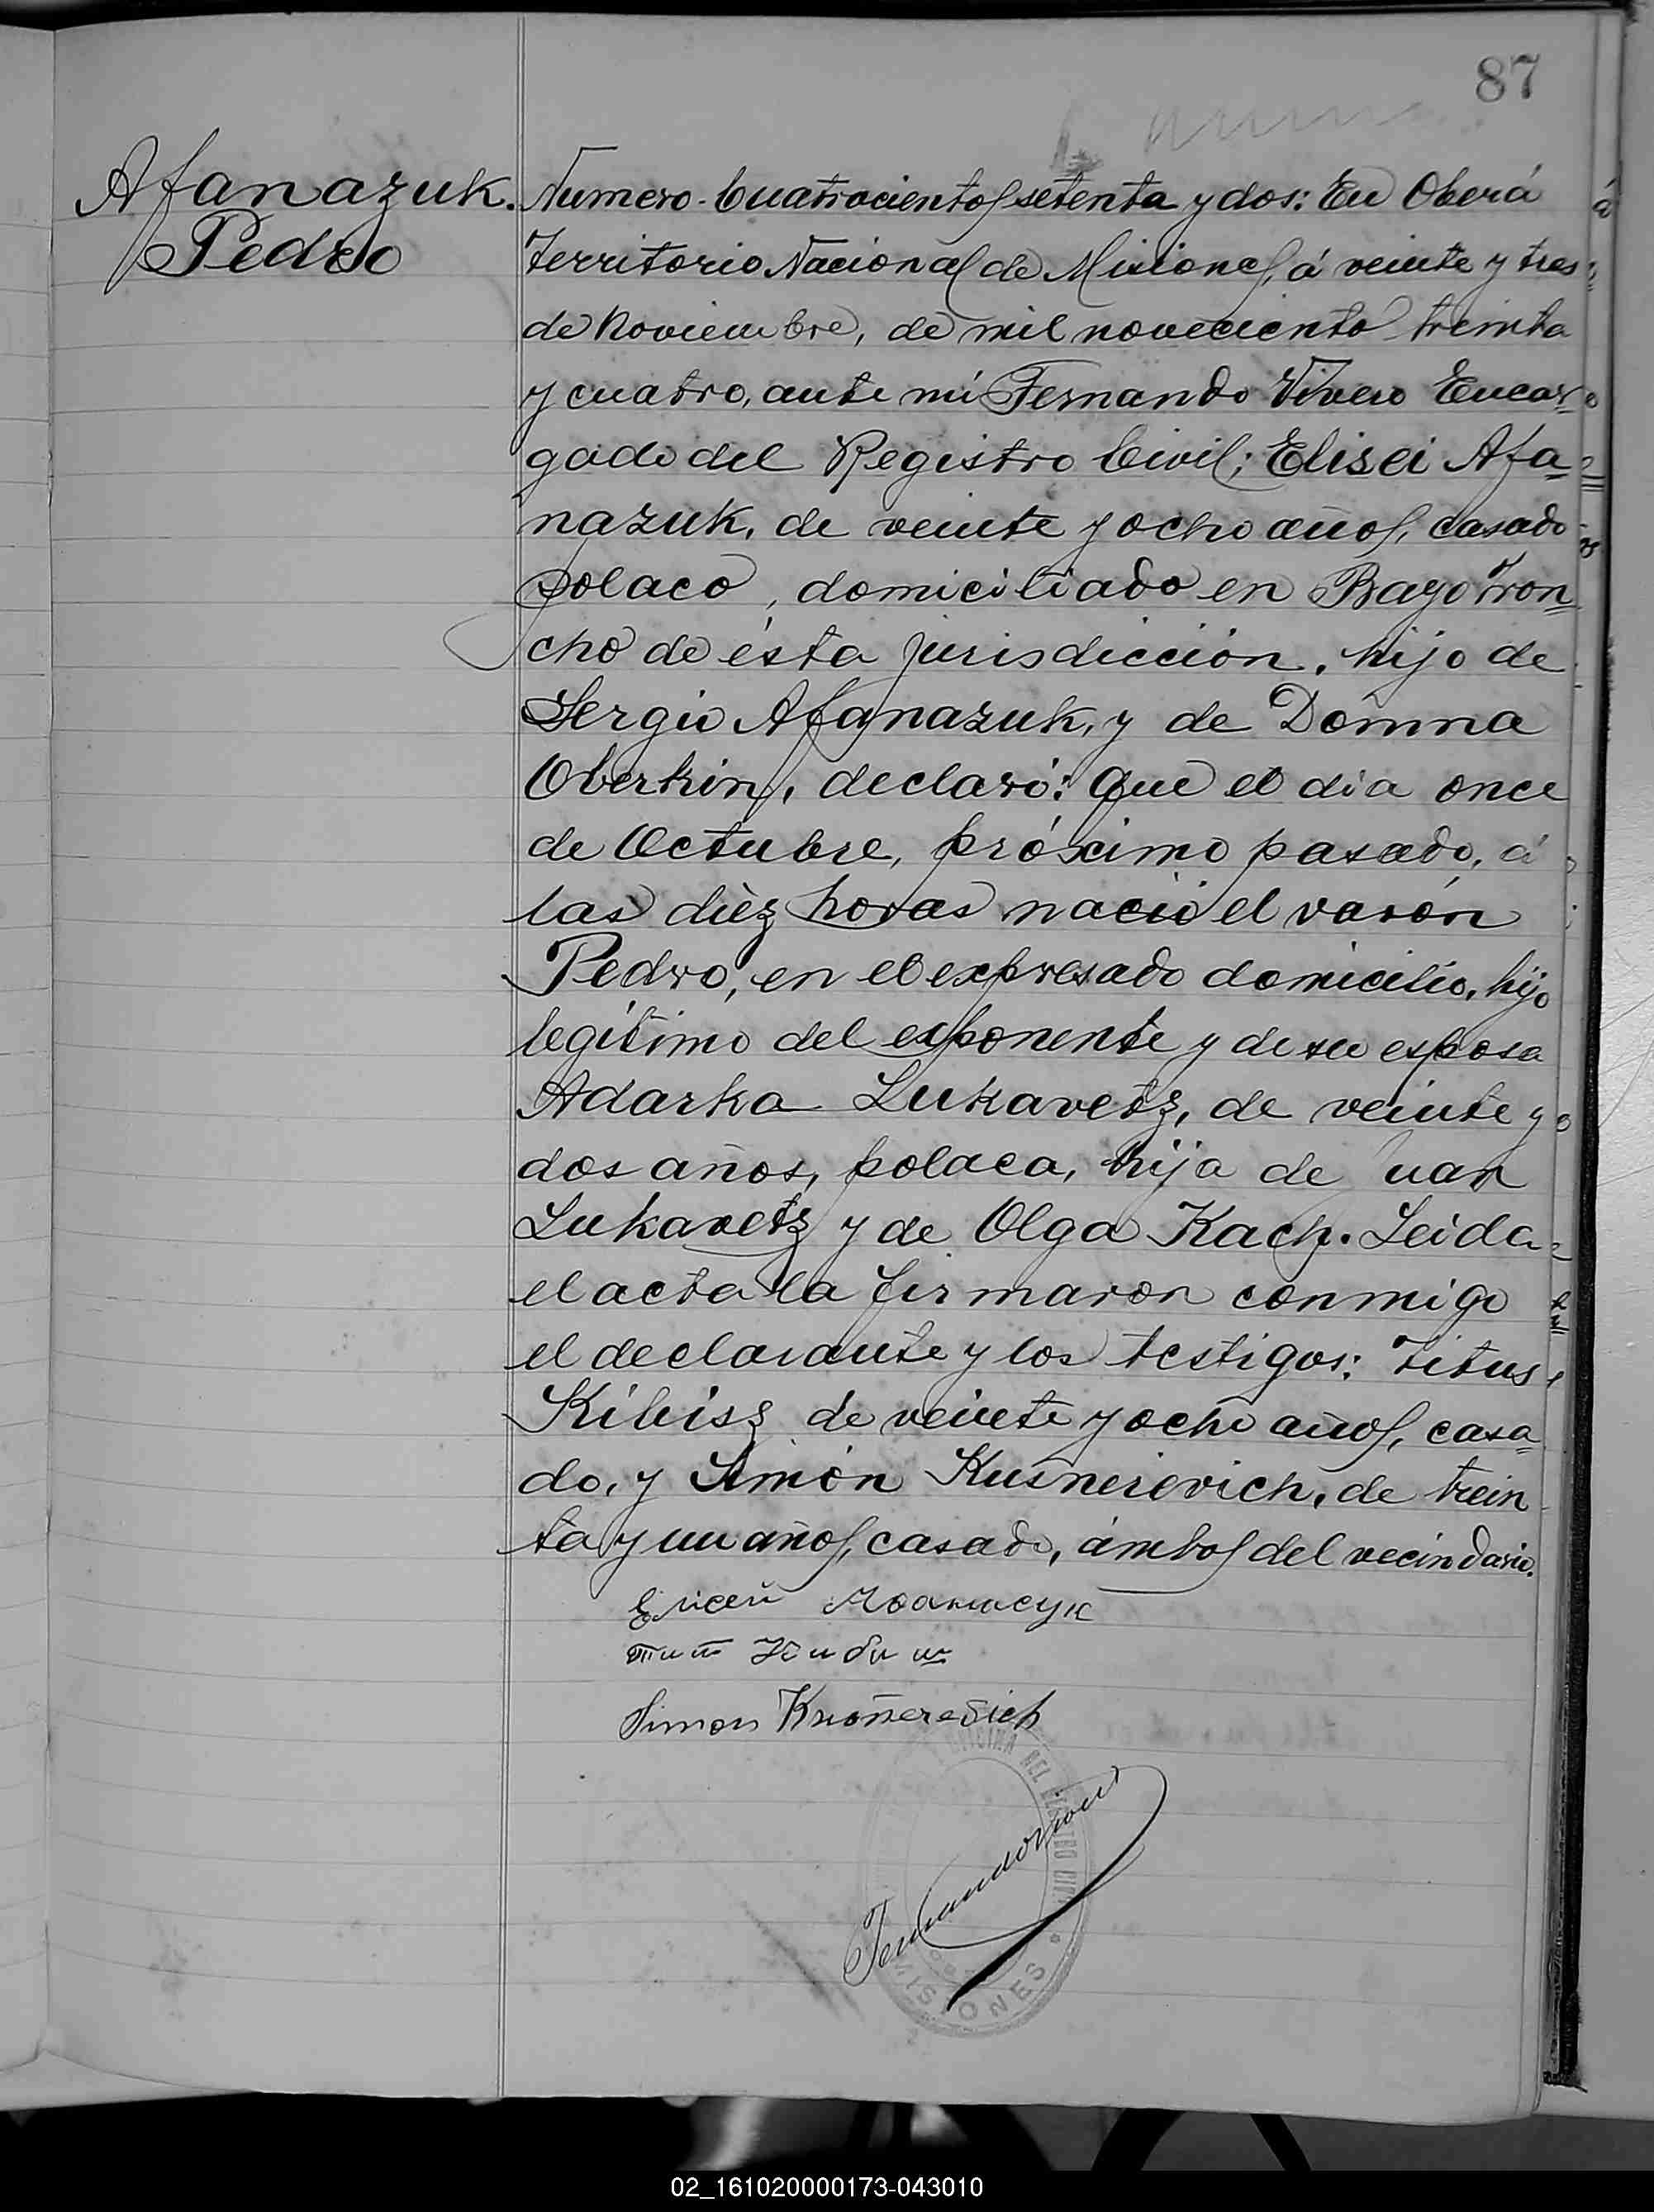 87
Afanazuk.
Pedro
Numero Cuatrocientos setenta y dos: En Oberá
Territorio Nacional de Misiones, á veinte y tres
de Noviembre, de mil noveciento treinta
y cuatro, ante mí Fernando Vivero Encar=
gado del Registro Civil; Elisei Afa=
nazuk, de veinte y ocho años, casado
polaco, domiciliado en Bayo Tron=
cho de ésta jurisdicción, hijo de
Sergio Afanazuk, y de Domna
Oberkin, declaró: Que el día once
de Octubre, próximo pasado, á
las diéz horas nació el varón
Pedro, en el expresado domicilio, hijo
legítimo del exponente y de su esposa
Adarka Lukavetz, de veinte y
dos años, polaca, hija de Juan
Lukavetz y de Olga Kach. Leida
el acta la firmaron conmigo
el declarante y los testigos: Titus
Kibisz de veinte y ocho años, casa=
do, y Simón Kusnerevich, de trein
ta y un años, casado, ámbos del vecindario.
Елисей Афанасук
Тит Кибиш
Simon
OFICINA DEL REGISTRO CIVIL
MISIONES
02_161020000173-043010